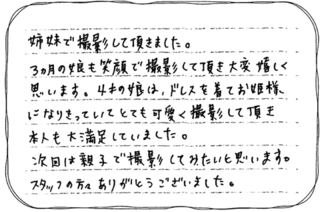 姉妹で撮影して頂きました。
3ヵ月の娘も笑顔で撮影して頂き大変嬉しく
思います。4才の娘は、ドレスを着てお姫様
になりきっていてとても可愛く撮影して頂き
本人も大満足していました。
次回は親子で撮影してみたいと思います。
スタッフの方々ありがとうございました。